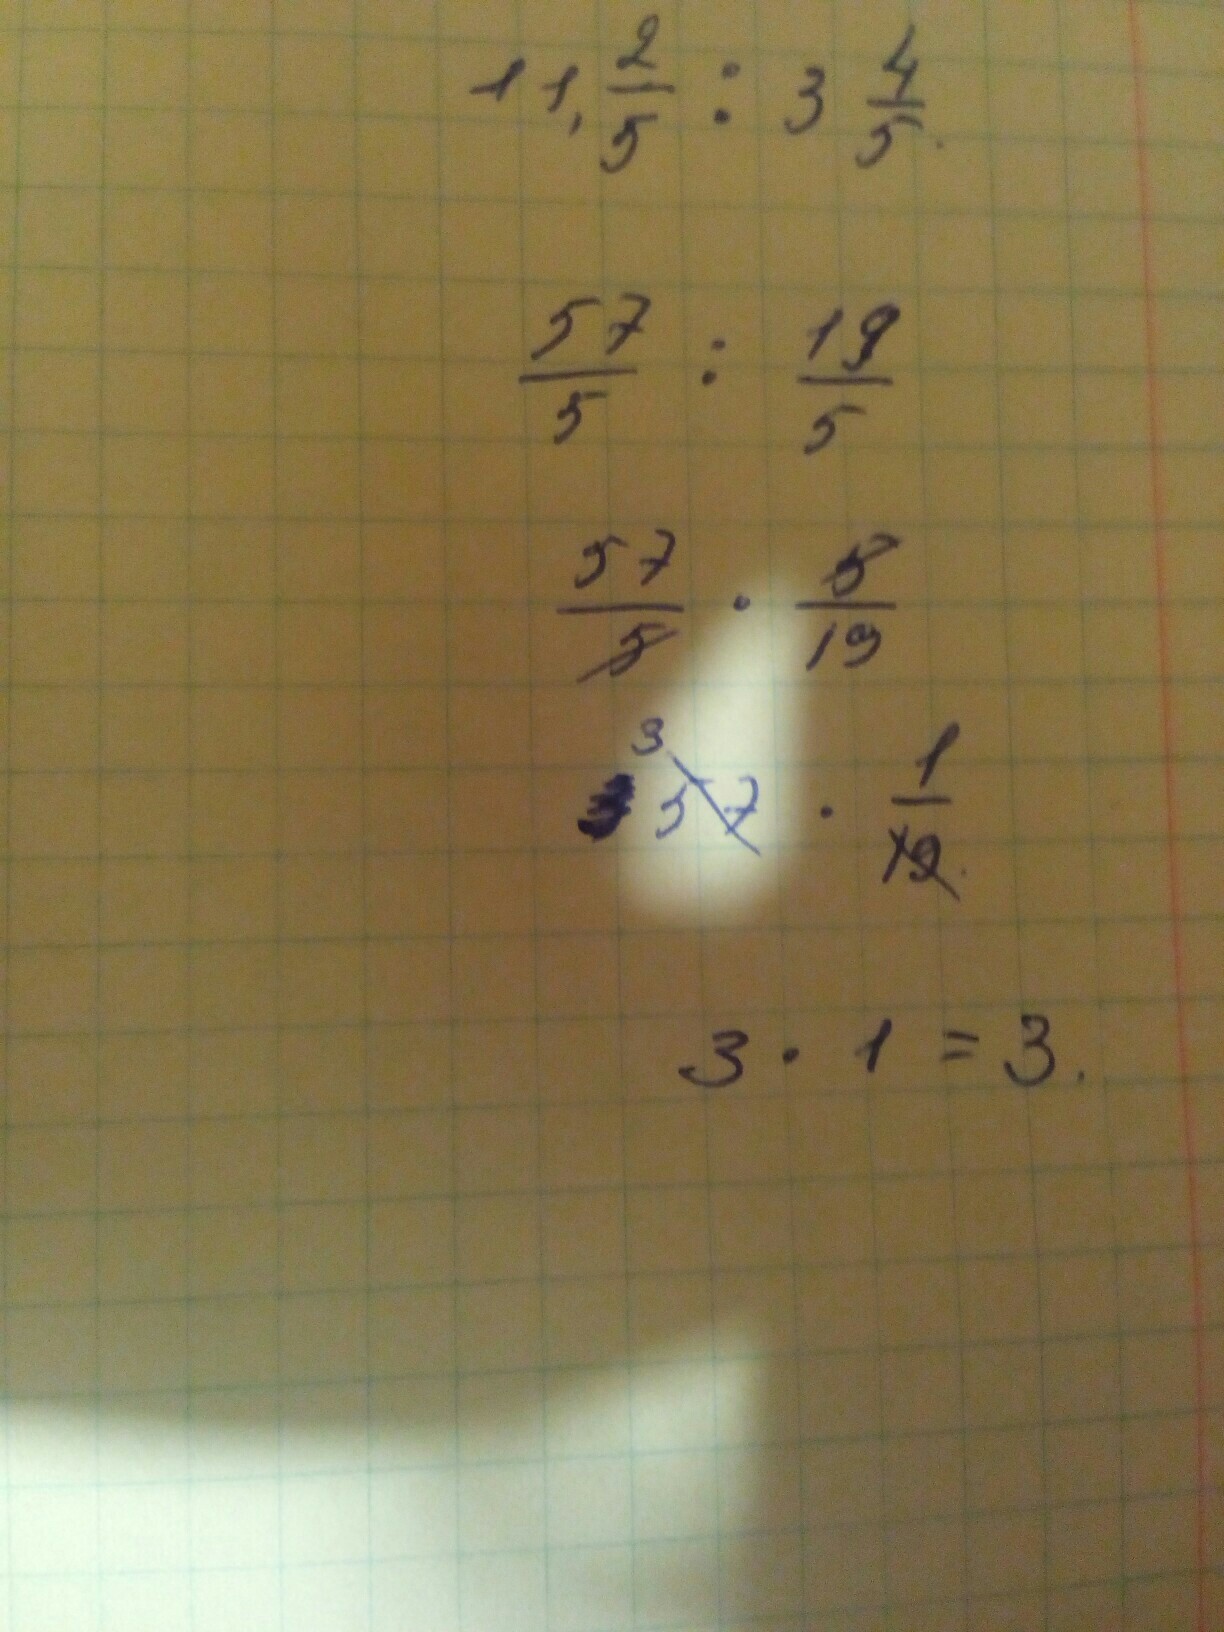 11, 2/5 : 3 4/5.
57/5 : 19/5
57/5 · 5/19
3 57 · 1/19.
3 · 1 = 3.